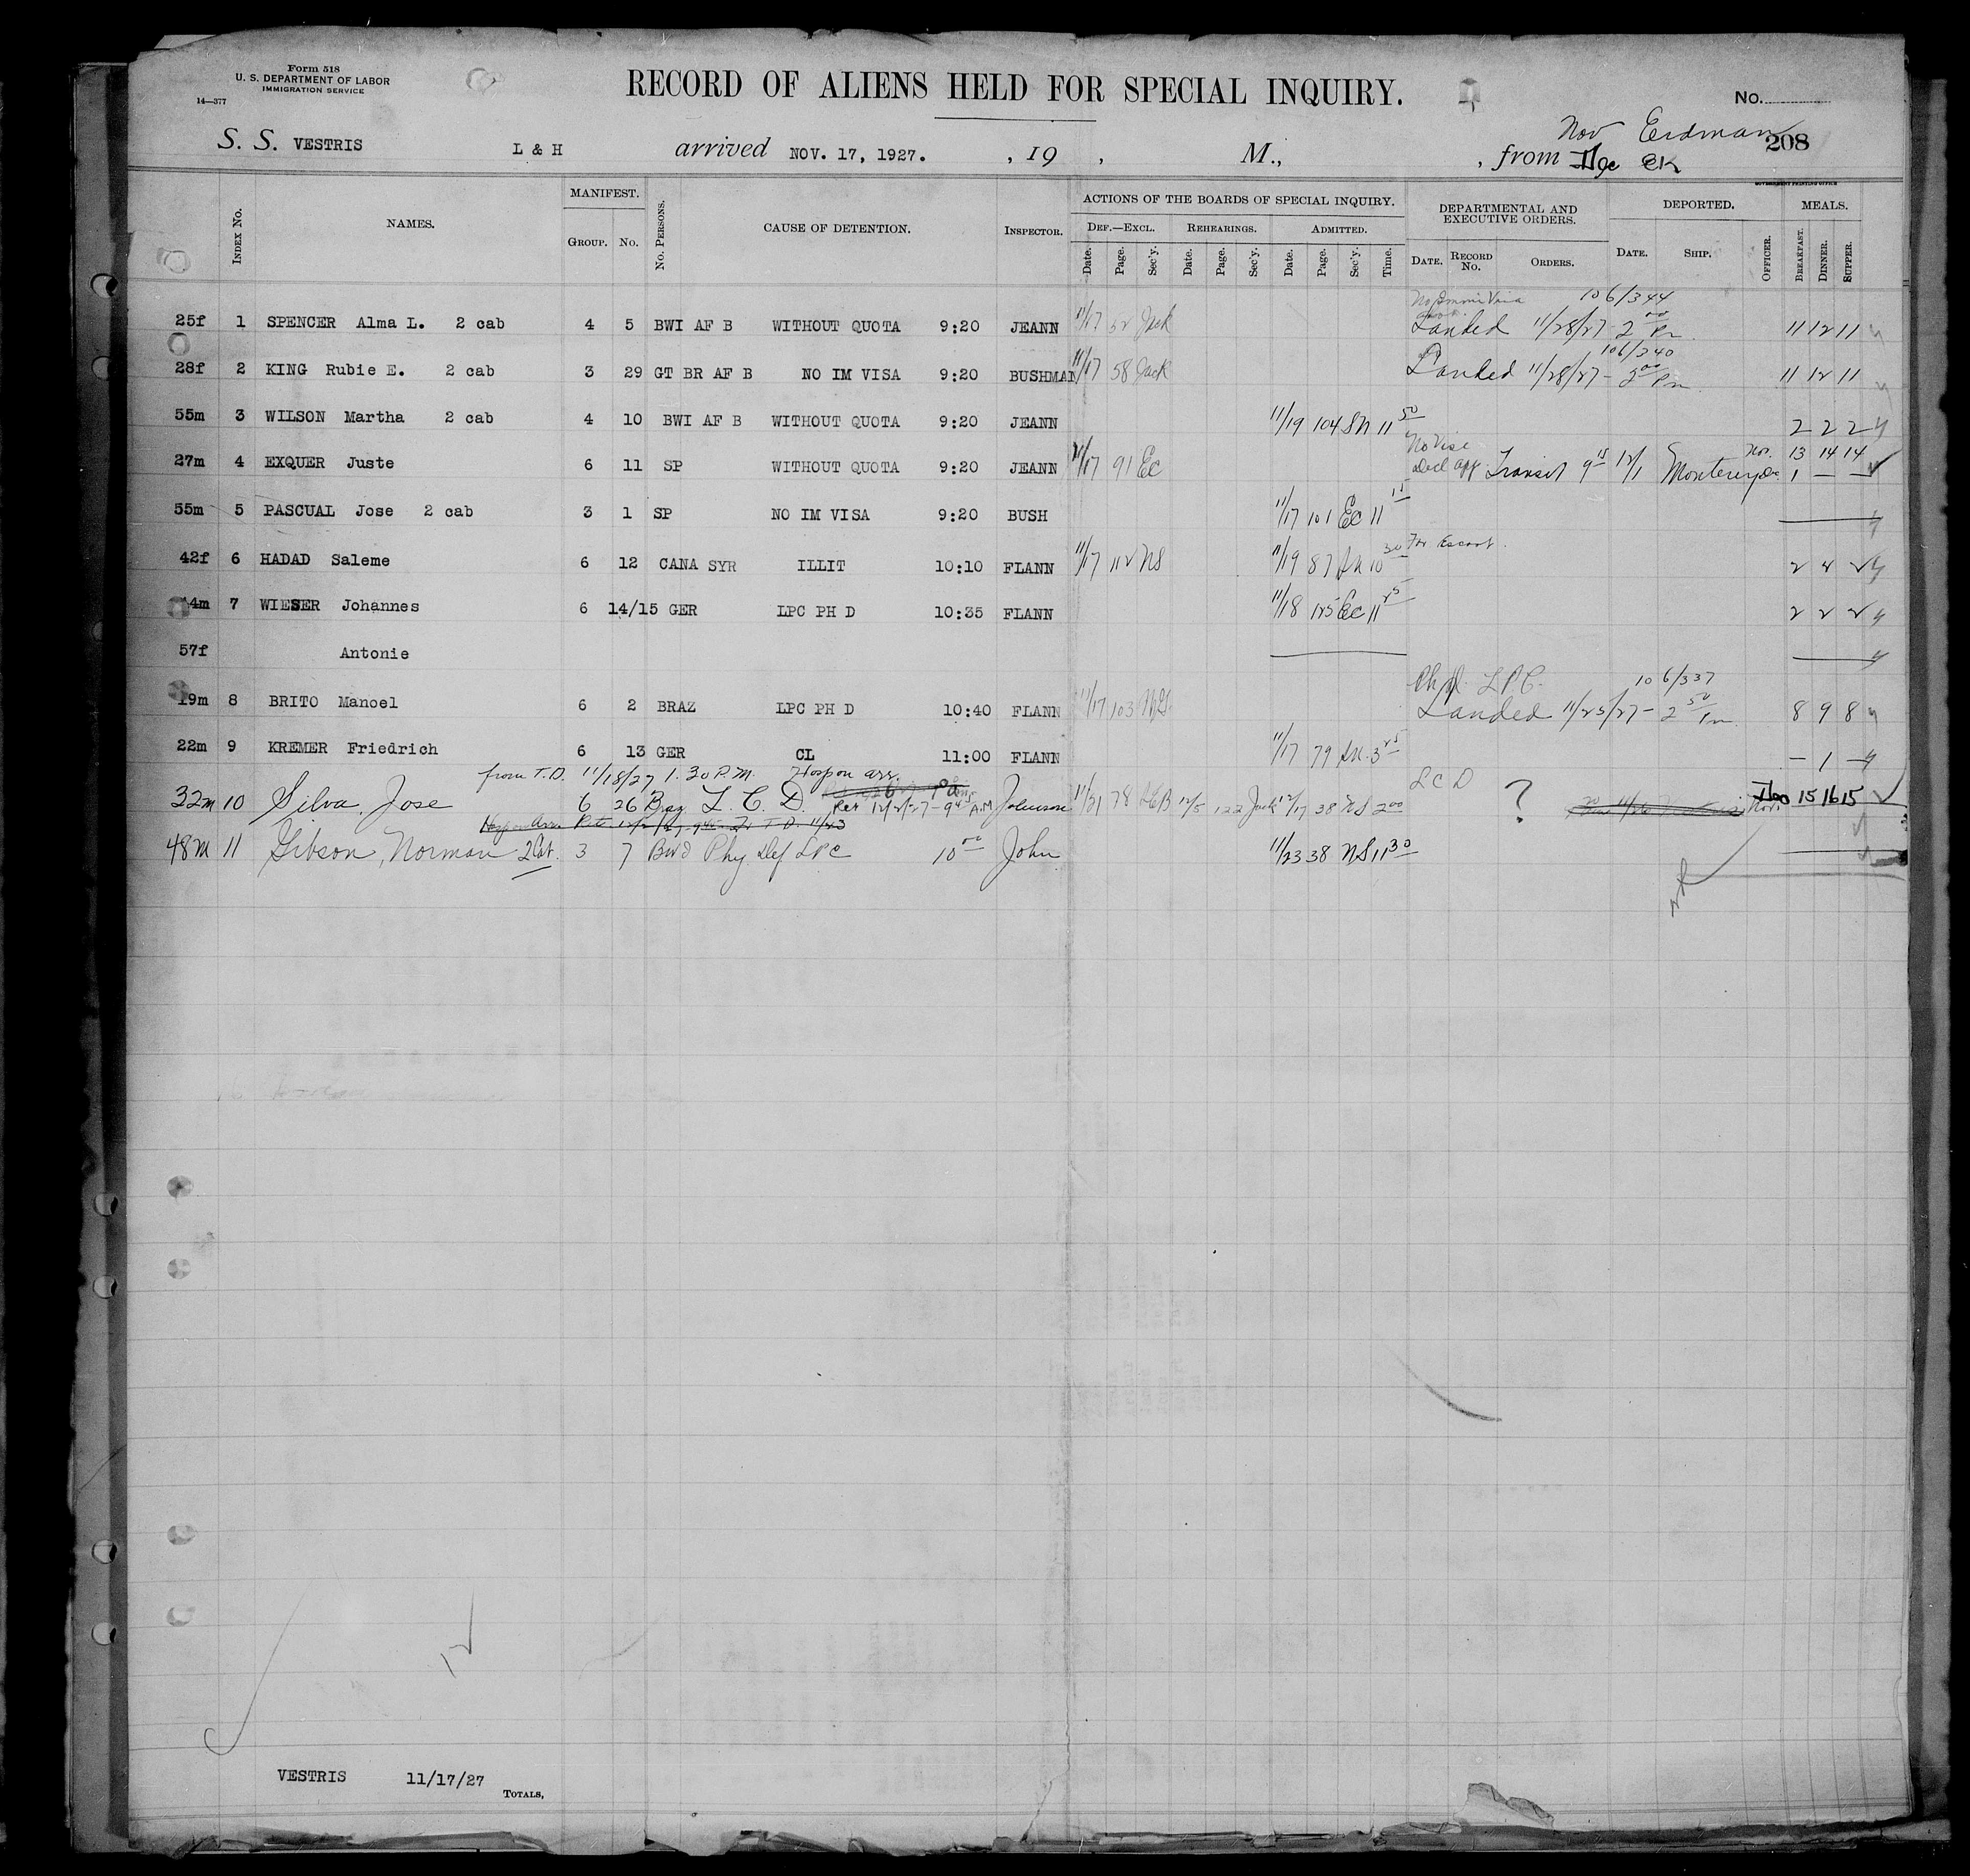 Form 518
U. S. DEPARTMENT OF LABOR
IMMIGRATION SERVICE
14—377
RECORD OF ALIENS HELD FOR SPECIAL INQUIRY.
No.
Nov Erdman
208
S. S. VESTRIS L & H arrived NOV. 17, 1927. , 19 , M., , from Dec EK
GOVERNMENT PRINTING OFFICE
Index No. NAMES. MANIFEST. Group. No. No. Persons. CAUSE OF DETENTION. Inspector. ACTIONS OF THE BOARDS OF SPECIAL INQUIRY. DEPARTMENTAL AND EXECUTIVE ORDERS. DEPORTED. MEALS.
Def.—Excl. Rehearings. Admitted.
Date. Page. Sec'y. Date. Page. Sec'y. Date. Page. Sec'y. Time. Date. Record No. Orders. Date. Ship. Officer. Breakfast. Dinner. Supper.
106/344
25f 1 SPENCER Alma L. 2 cab 4 5 BWI AF B WITHOUT QUOTA 9:20 JEANN 11/17 52 Jack Landed 11/28/27 - 2 00 Pm 11 12 11
106/340
28f 2 KING Rubie E. 2 cab 3 29 GT BR AF B NO IM VISA 9:20 BUSHMAN 11/17 58 Jack Landed 11/28/27 - 2 00 Pm 11 12 11
55m 3 WILSON Martha 2 cab 4 10 BWI AF B WITHOUT QUOTA 9:20 JEANN 11/19 104 SN 11 50 2 2 2
No Vise Nov. 13 14 14
27m 4 EXQUER Juste 6 11 SP WITHOUT QUOTA 9:20 JEANN 11/17 91 EC Transit 9 15 12/1 Monterey Dec 1 — —
55m 5 PASCUAL Jose 2 cab 3 1 SP NO IM VISA 9:20 BUSH 11/17 101 EC 11 15
For Escort.
42f 6 HADAD Saleme 6 12 CANA SYR ILLIT 10:10 FLANN 11/17 112 NS 11/19 87 SN 10 30 2 4 2
44m 7 WIESER Johannes 6 14/15 GER LPC PH D 10:35 FLANN 11/18 125 EC 11 25 2 2 2
57f Antonie
Ph D. LPC. 106/337
19m 8 BRITO Manoel 6 2 BRAZ LPC PH D 10:40 FLANN 11/17 103 NS Landed 11/25/27 - 2 50 Pm 8 9 8
22m 9 KREMER Friedrich 6 13 GER CL 11:00 FLANN 11/17 79 SN 3 25 — 1 —
from T.D. 11/18/27 1.30 P.M. Hosp on arr.
32m 10 Silva, Jose 6 26 Braz L. C. D. Ret 12/2/27 - 9 45 A.M Johnson 11/21 78 LEB 12/5 122 Jack 12/17 38 NS 2 00 LCD ? Nov. 15 16 15
48m 11 Gibson, Norman 2 Cab. 3 7 Bwd Phy Def LPC 10 50 John 11/23 38 NS 11 30
12
VESTRIS 11/17/27
Totals,